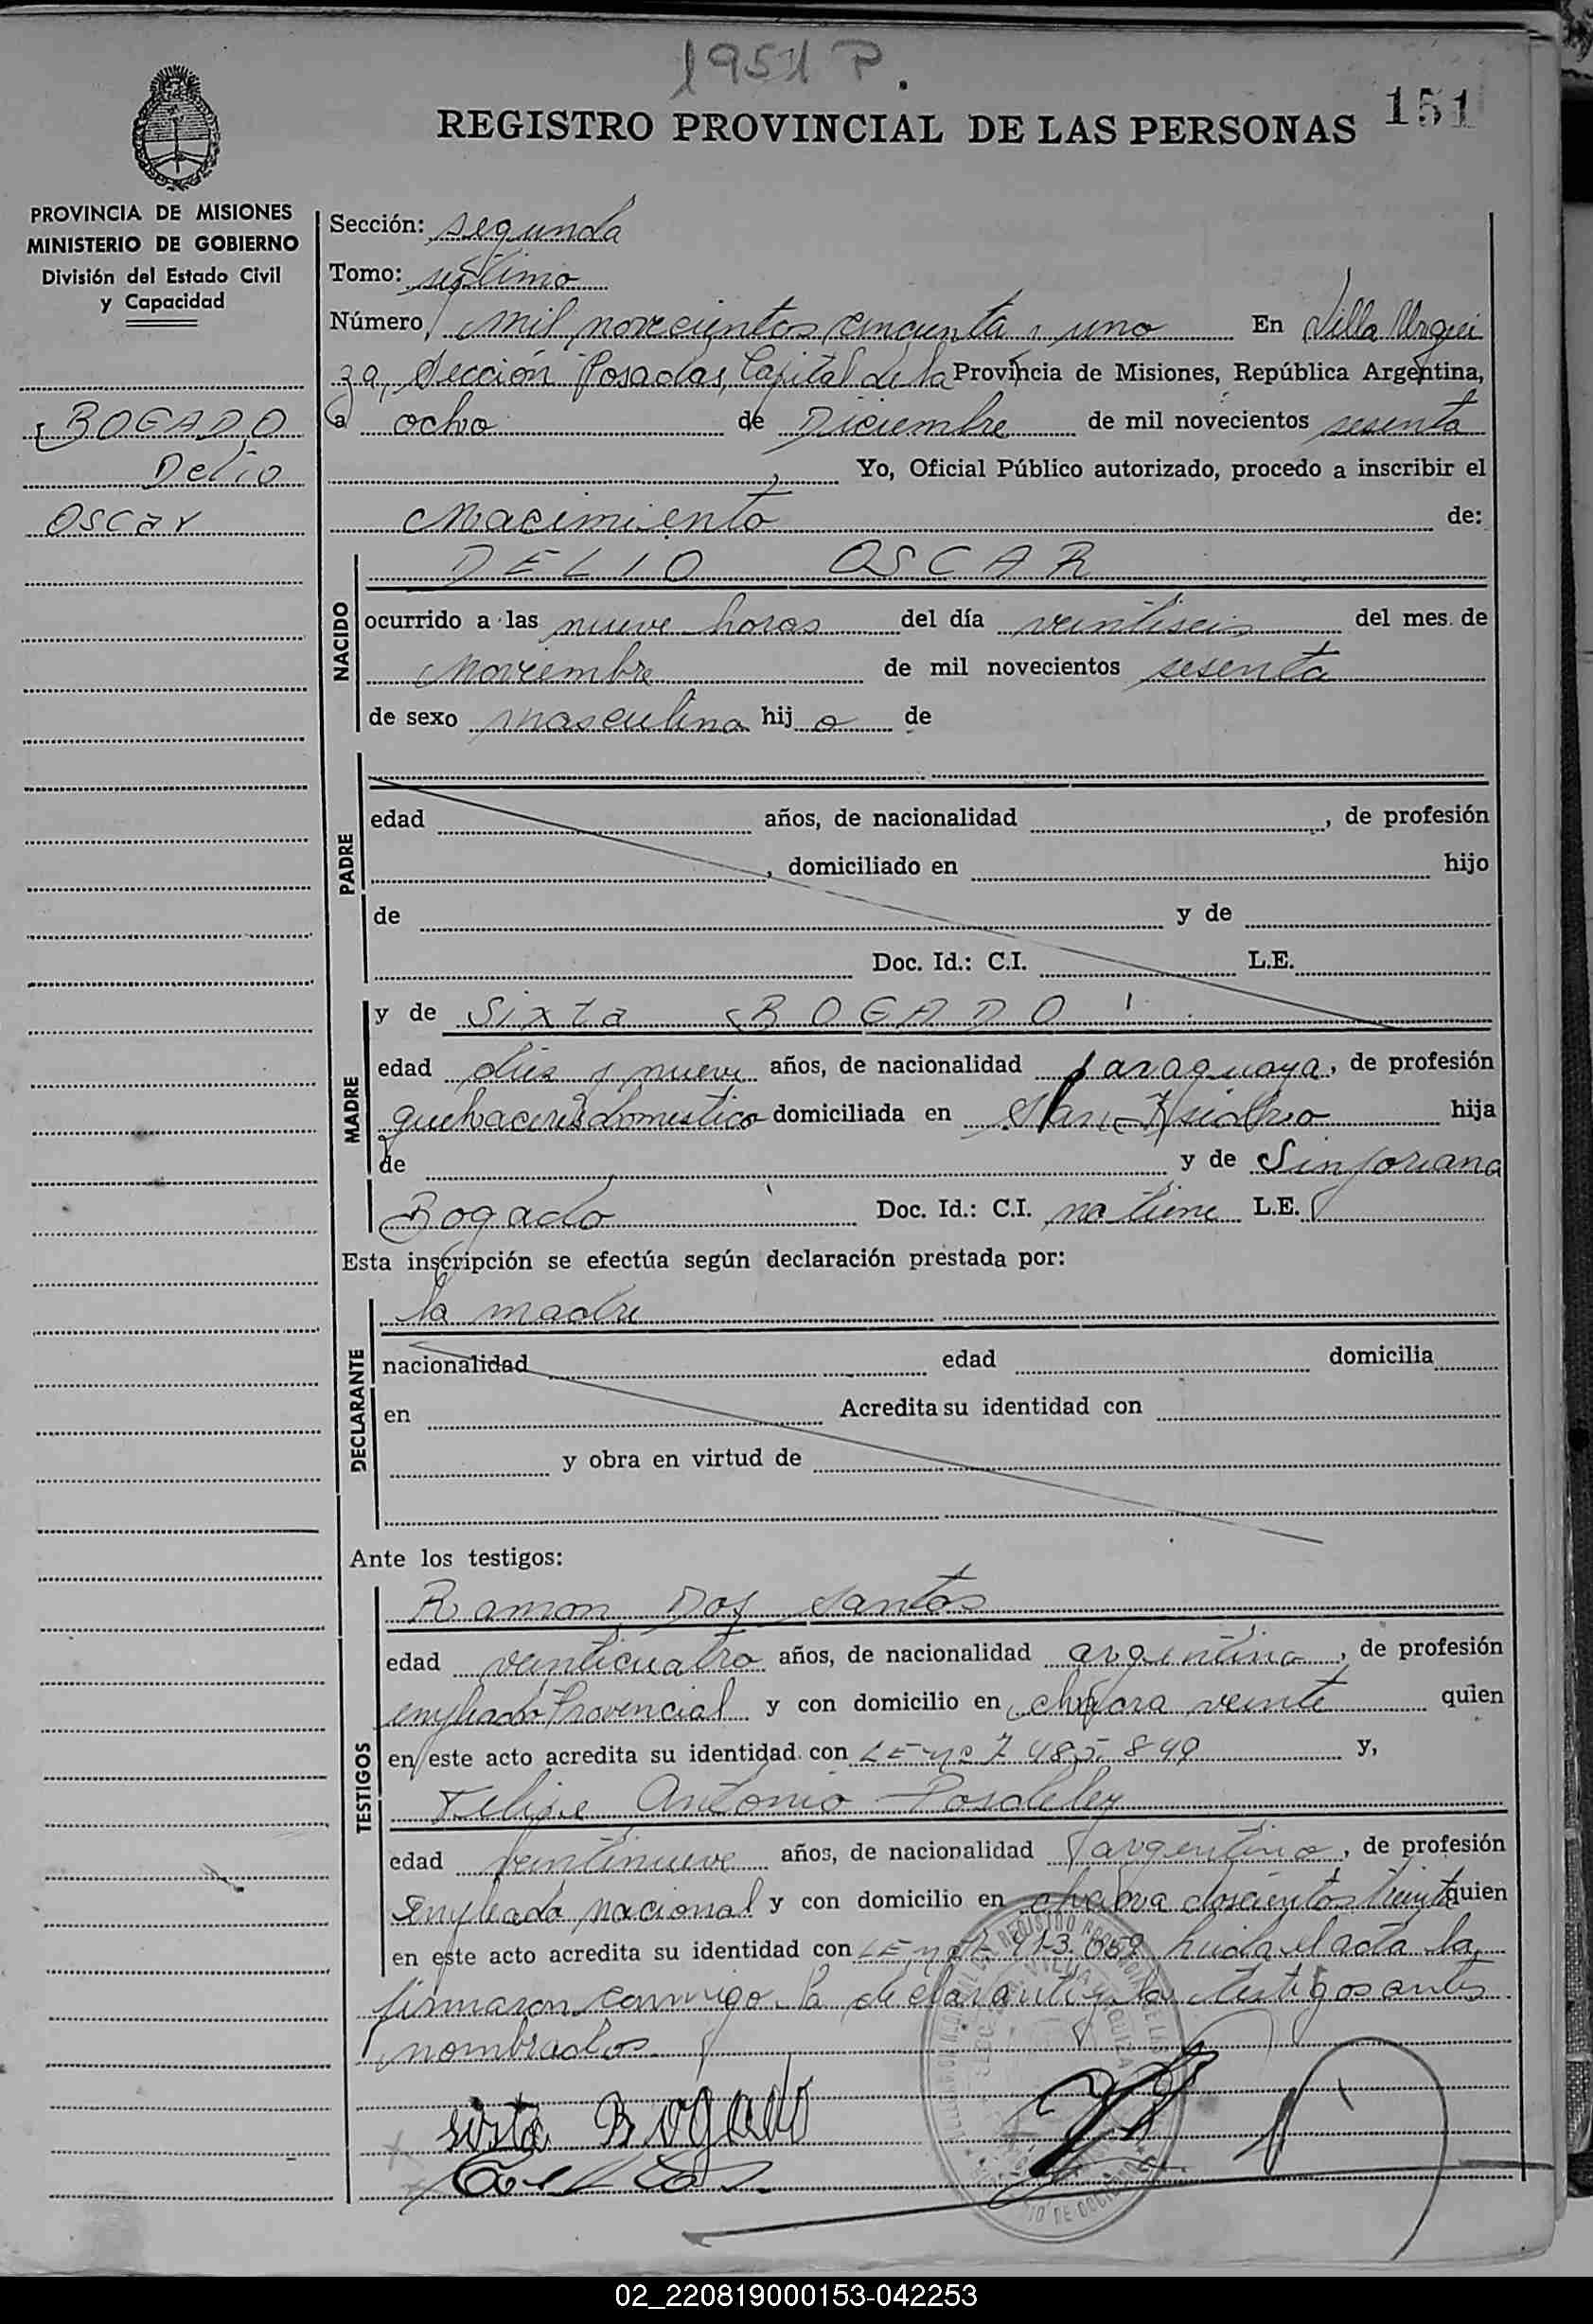 1951 P.
151
REGISTRO PROVINCIAL DE LAS PERSONAS
PROVINCIA DE MISIONES
MINISTERIO DE GOBIERNO
División del Estado Civil
y Capacidad
BOGADO
Delio
Oscar
Sección: segunda
Tomo: septimo
Número, mil novecientos cincuenta y uno En Villa Urqui
za, Sección Posadas, Capital de la Provincia de Misiones, República Argentina,
a ocho de Diciembre de mil novecientos sesenta
Yo, Oficial Público autorizado, procedo a inscribir el
Nacimiento de:
NACIDO
DELIO OSCAR
ocurrido a las nueve horas del día veintiseis del mes de
Noviembre de mil novecientos sesenta
de sexo masculino hij o de
PADRE
edad años, de nacionalidad , de profesión
, domiciliado en hijo
de y de
Doc. Id.: C.I. L.E.
MADRE
y de Sixta BOGADO
edad diez y nueve años, de nacionalidad paraguaya, de profesión
quehaceres domestico domiciliada en San Isidro hija
de y de Sinforiana
Bogado Doc. Id.: C.I. no tiene L.E.
Esta inscripción se efectúa según declaración prestada por:
DECLARANTE
la madre
nacionalidad edad domicilia
en Acredita su identidad con
y obra en virtud de
Ante los testigos:
TESTIGOS
Ramon Dos Santos
edad veinticuatro años, de nacionalidad argentino, de profesión
empleado Provincial y con domicilio en chacra veinte quien
en este acto acredita su identidad con LE Nº 7.485.849 y,
Felipe Antonio
edad veintinueve años, de nacionalidad argentino, de profesión
Empleado nacional y con domicilio en chacra doscientos treinta quien
en este acto acredita su identidad con LE leida el acta la
firmaron conmigo la declarante y los testigos antes
nombrados
sixta Bogado
02_220819000153-042253